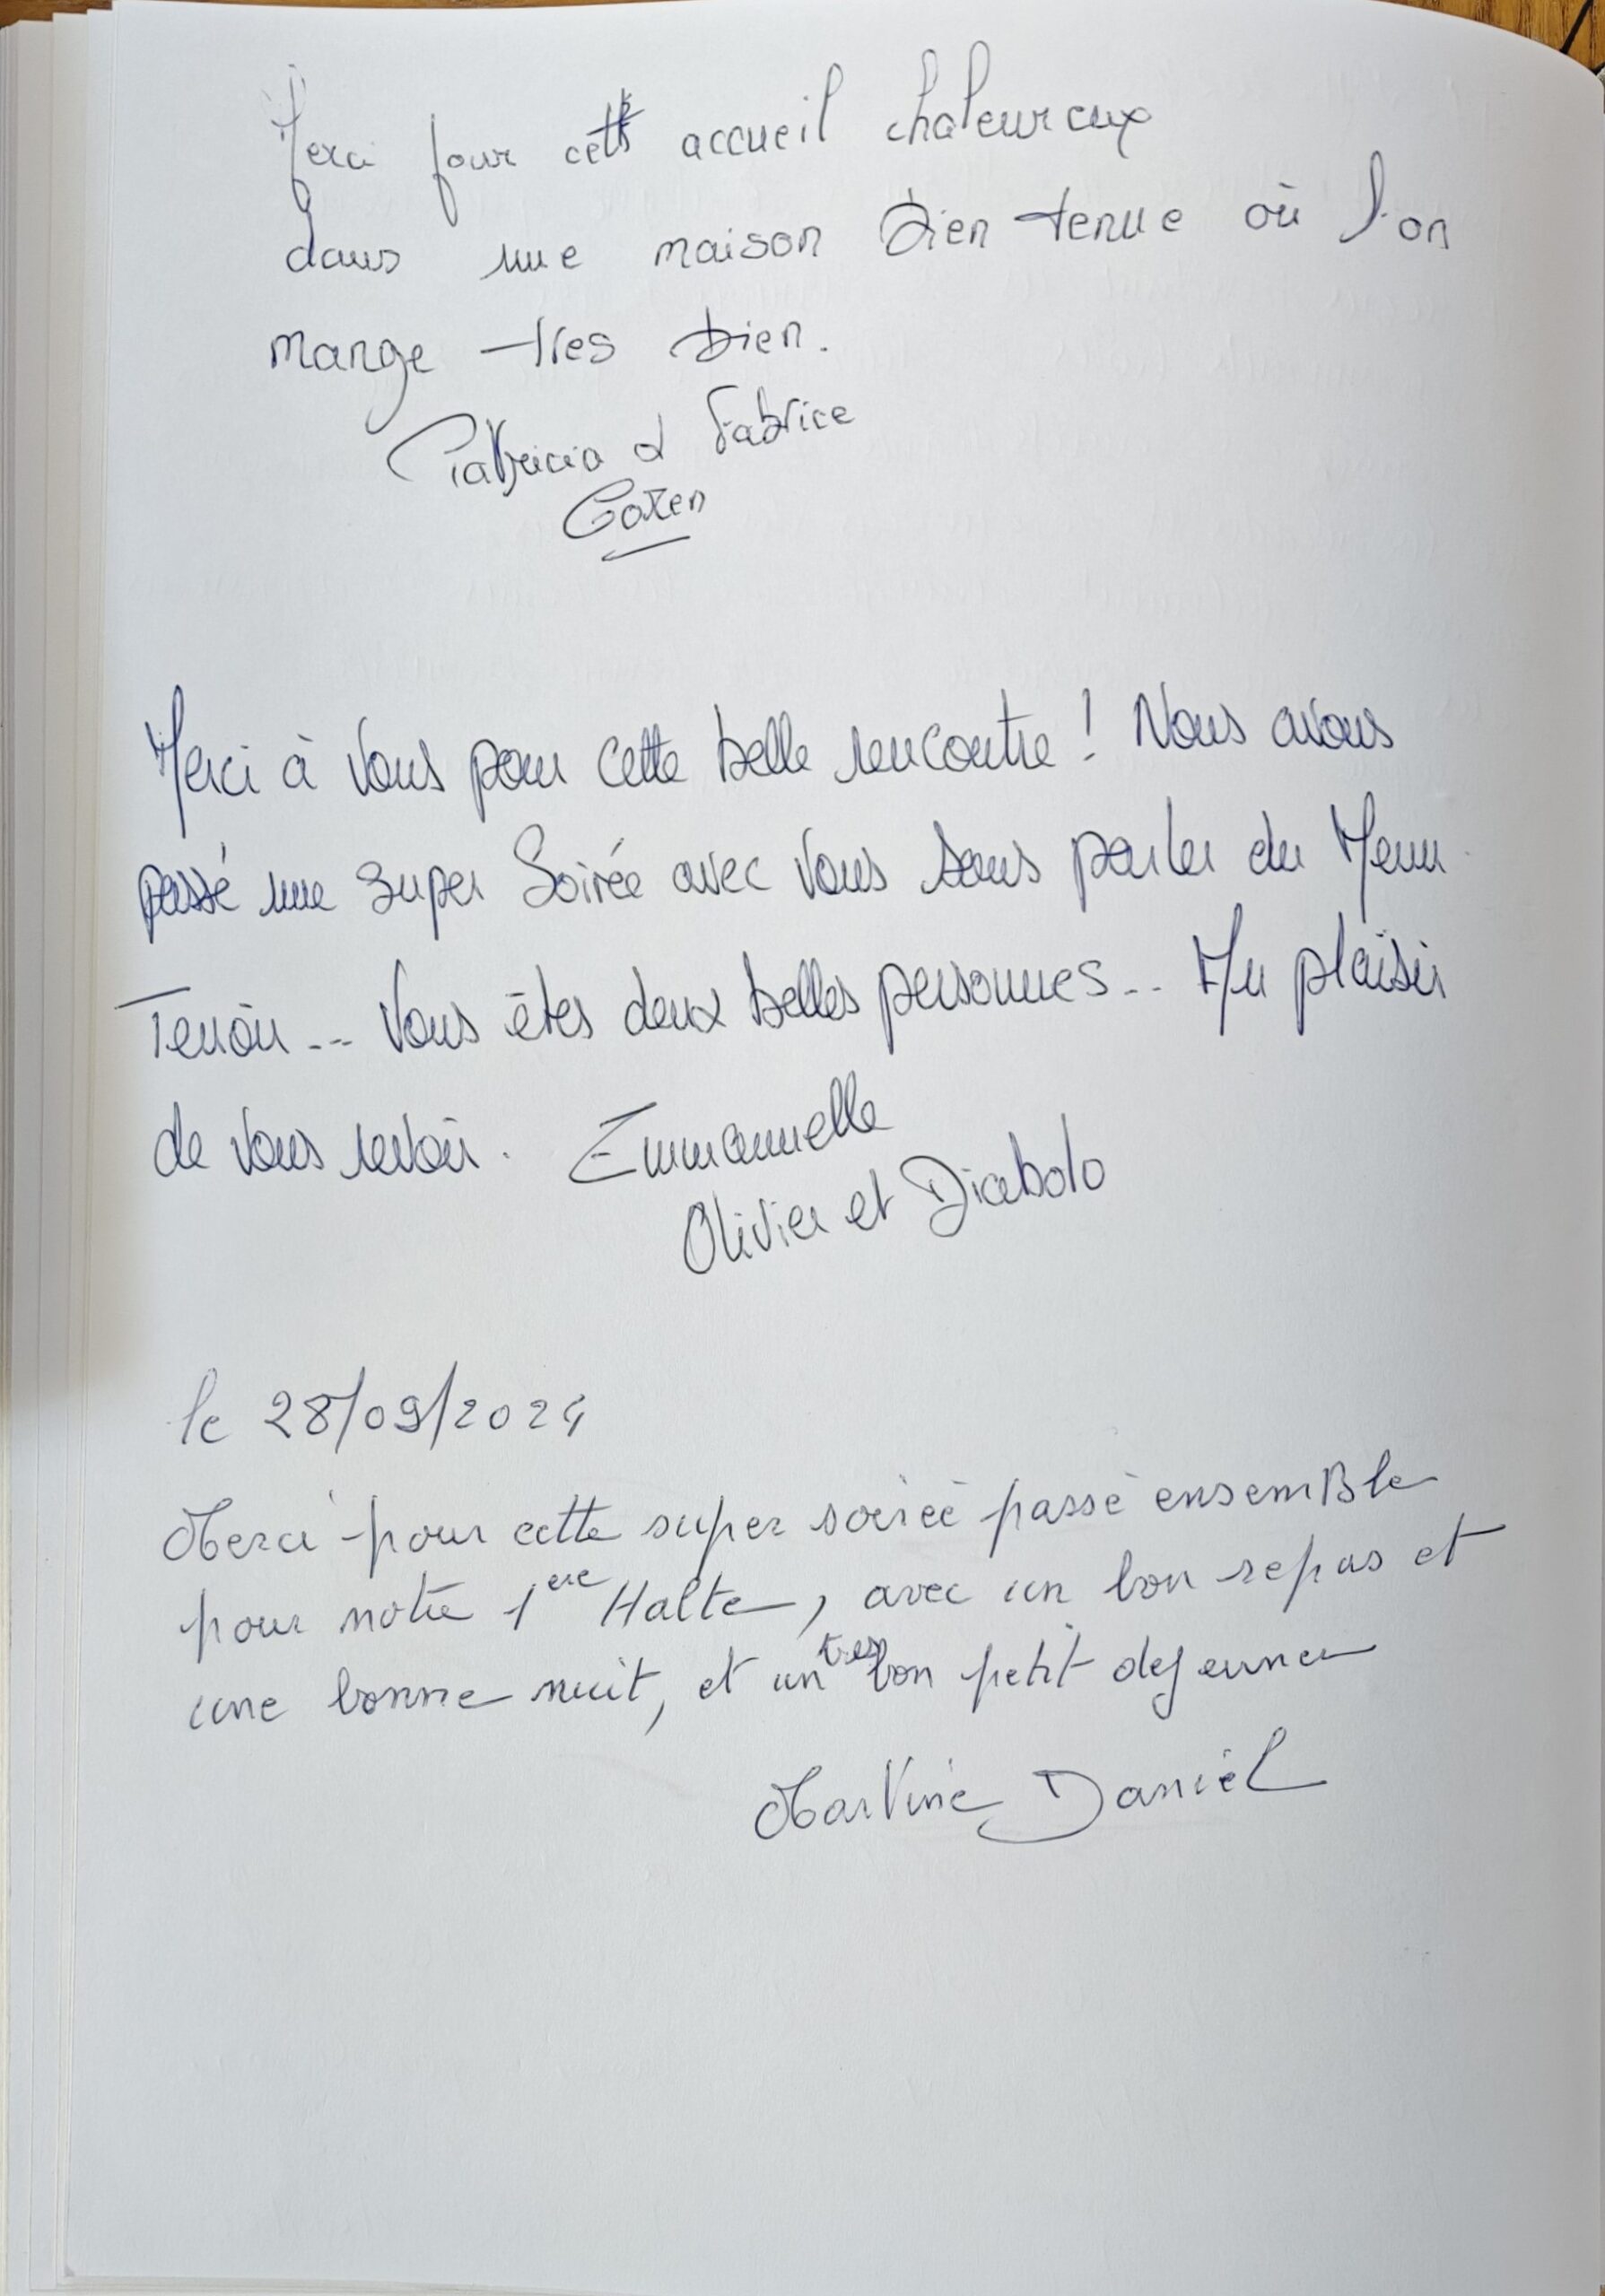 Merci pour cette accueil chaleureux
dans une maison bien tenue où l'on
mange très bien.
Patricia & Fabrice
Merci à vous pour cette belle rencontre ! Nous avons
passé une super Soirée avec vous sans parler du Menu
Terroir... Vous êtes deux belles personnes... Au plaisir
de vous revoir. Emmanuelle
Olivier et Diabolo
le 28/09/2024
Merci pour cette super soireé passé ensemBle
pour notre 1ere Halte, avec un bon repas et
une bonne nuit, et un tres bon petit dejeuner
Martine Daniel